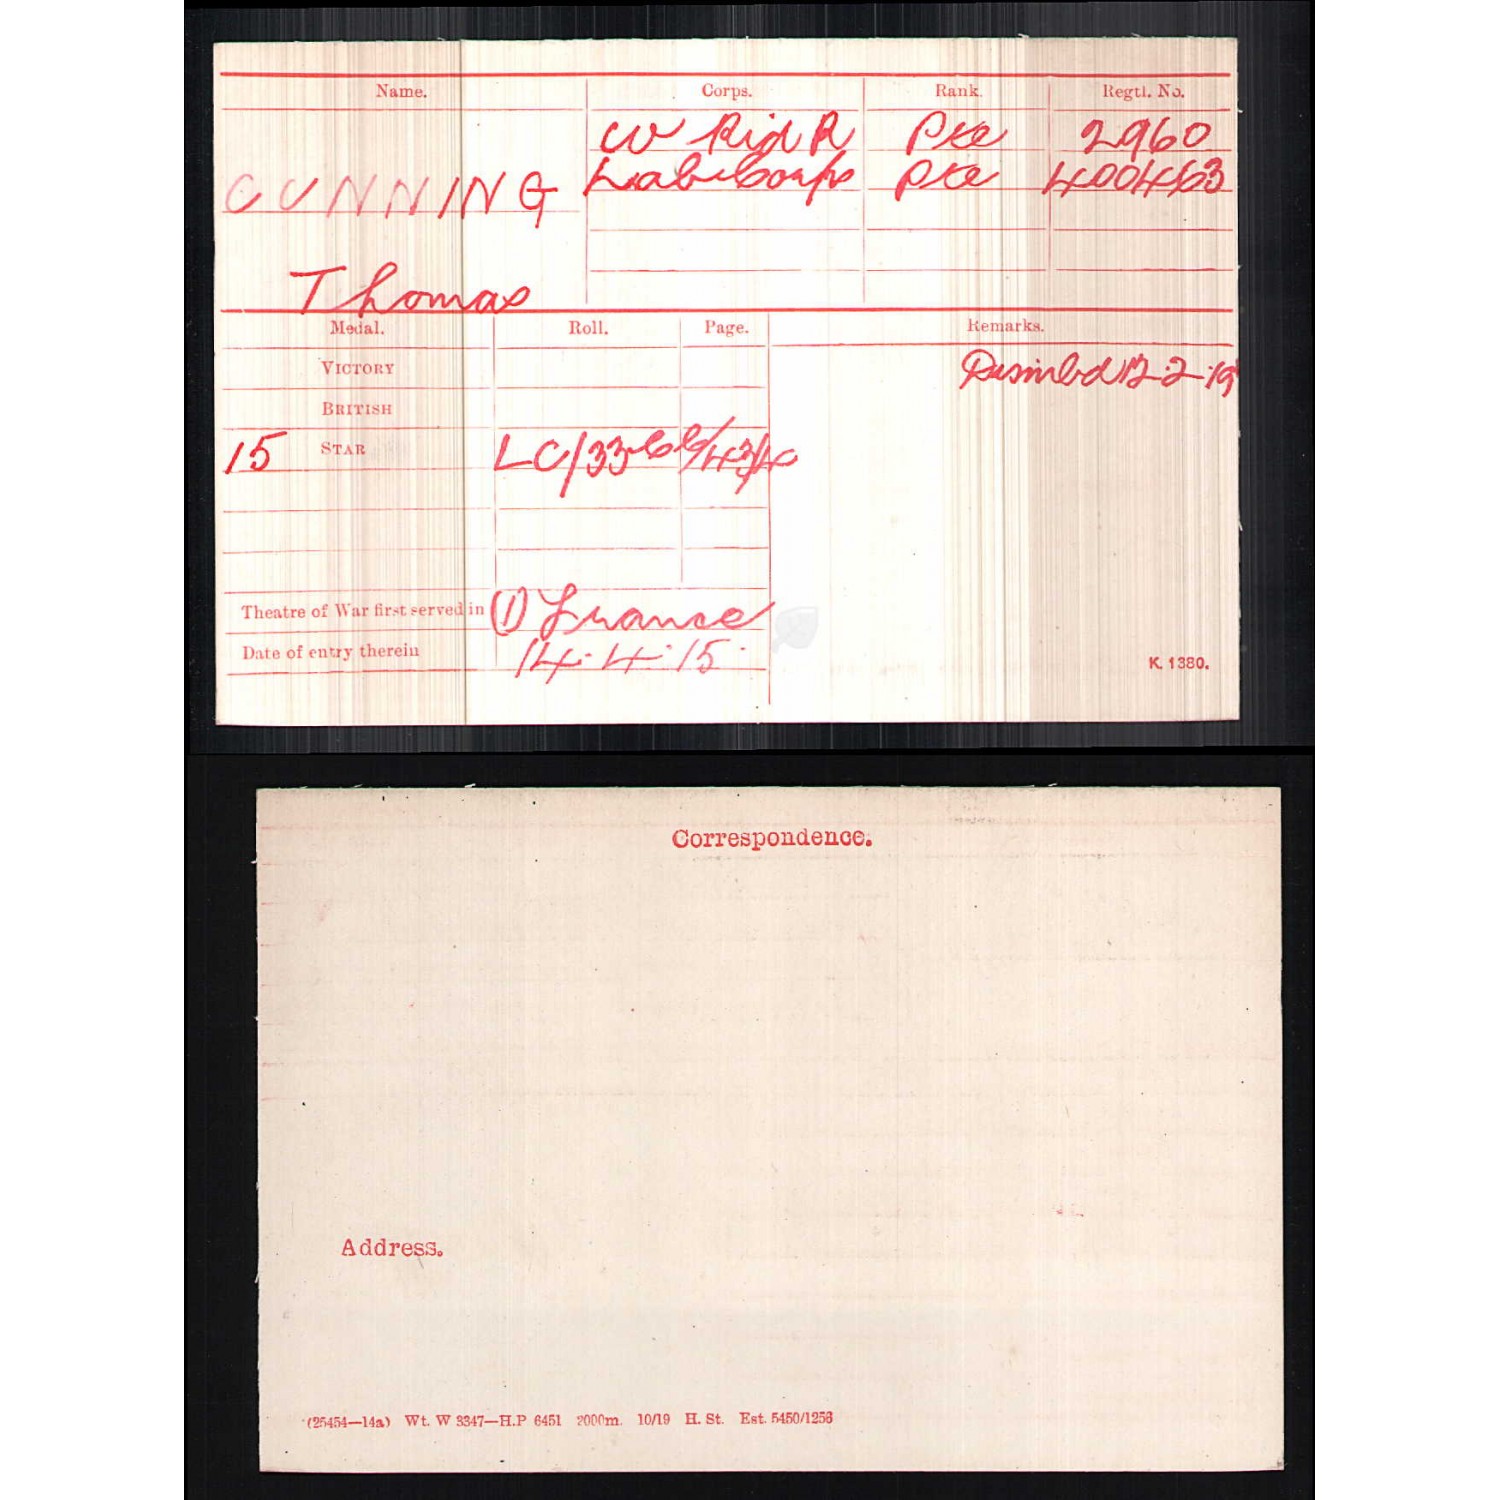 Name. Corps. Rank. Regtl. No.
W Rid R Pte 2960
CUNNING Labr Corps Pte 400463
Thomas
Medal. Roll. Page. Remarks.
VICTORY 12-2-19
BRITISH
15 STAR LC/33
Theatre of War first served in (1) France
Date of entry therein 14.4.15.
K. 1380.
Correspondence.
Address.
(25454—14a) Wt. W 3347—H.P 6451 2000m. 10/19 H. St. Est. 5450/1256